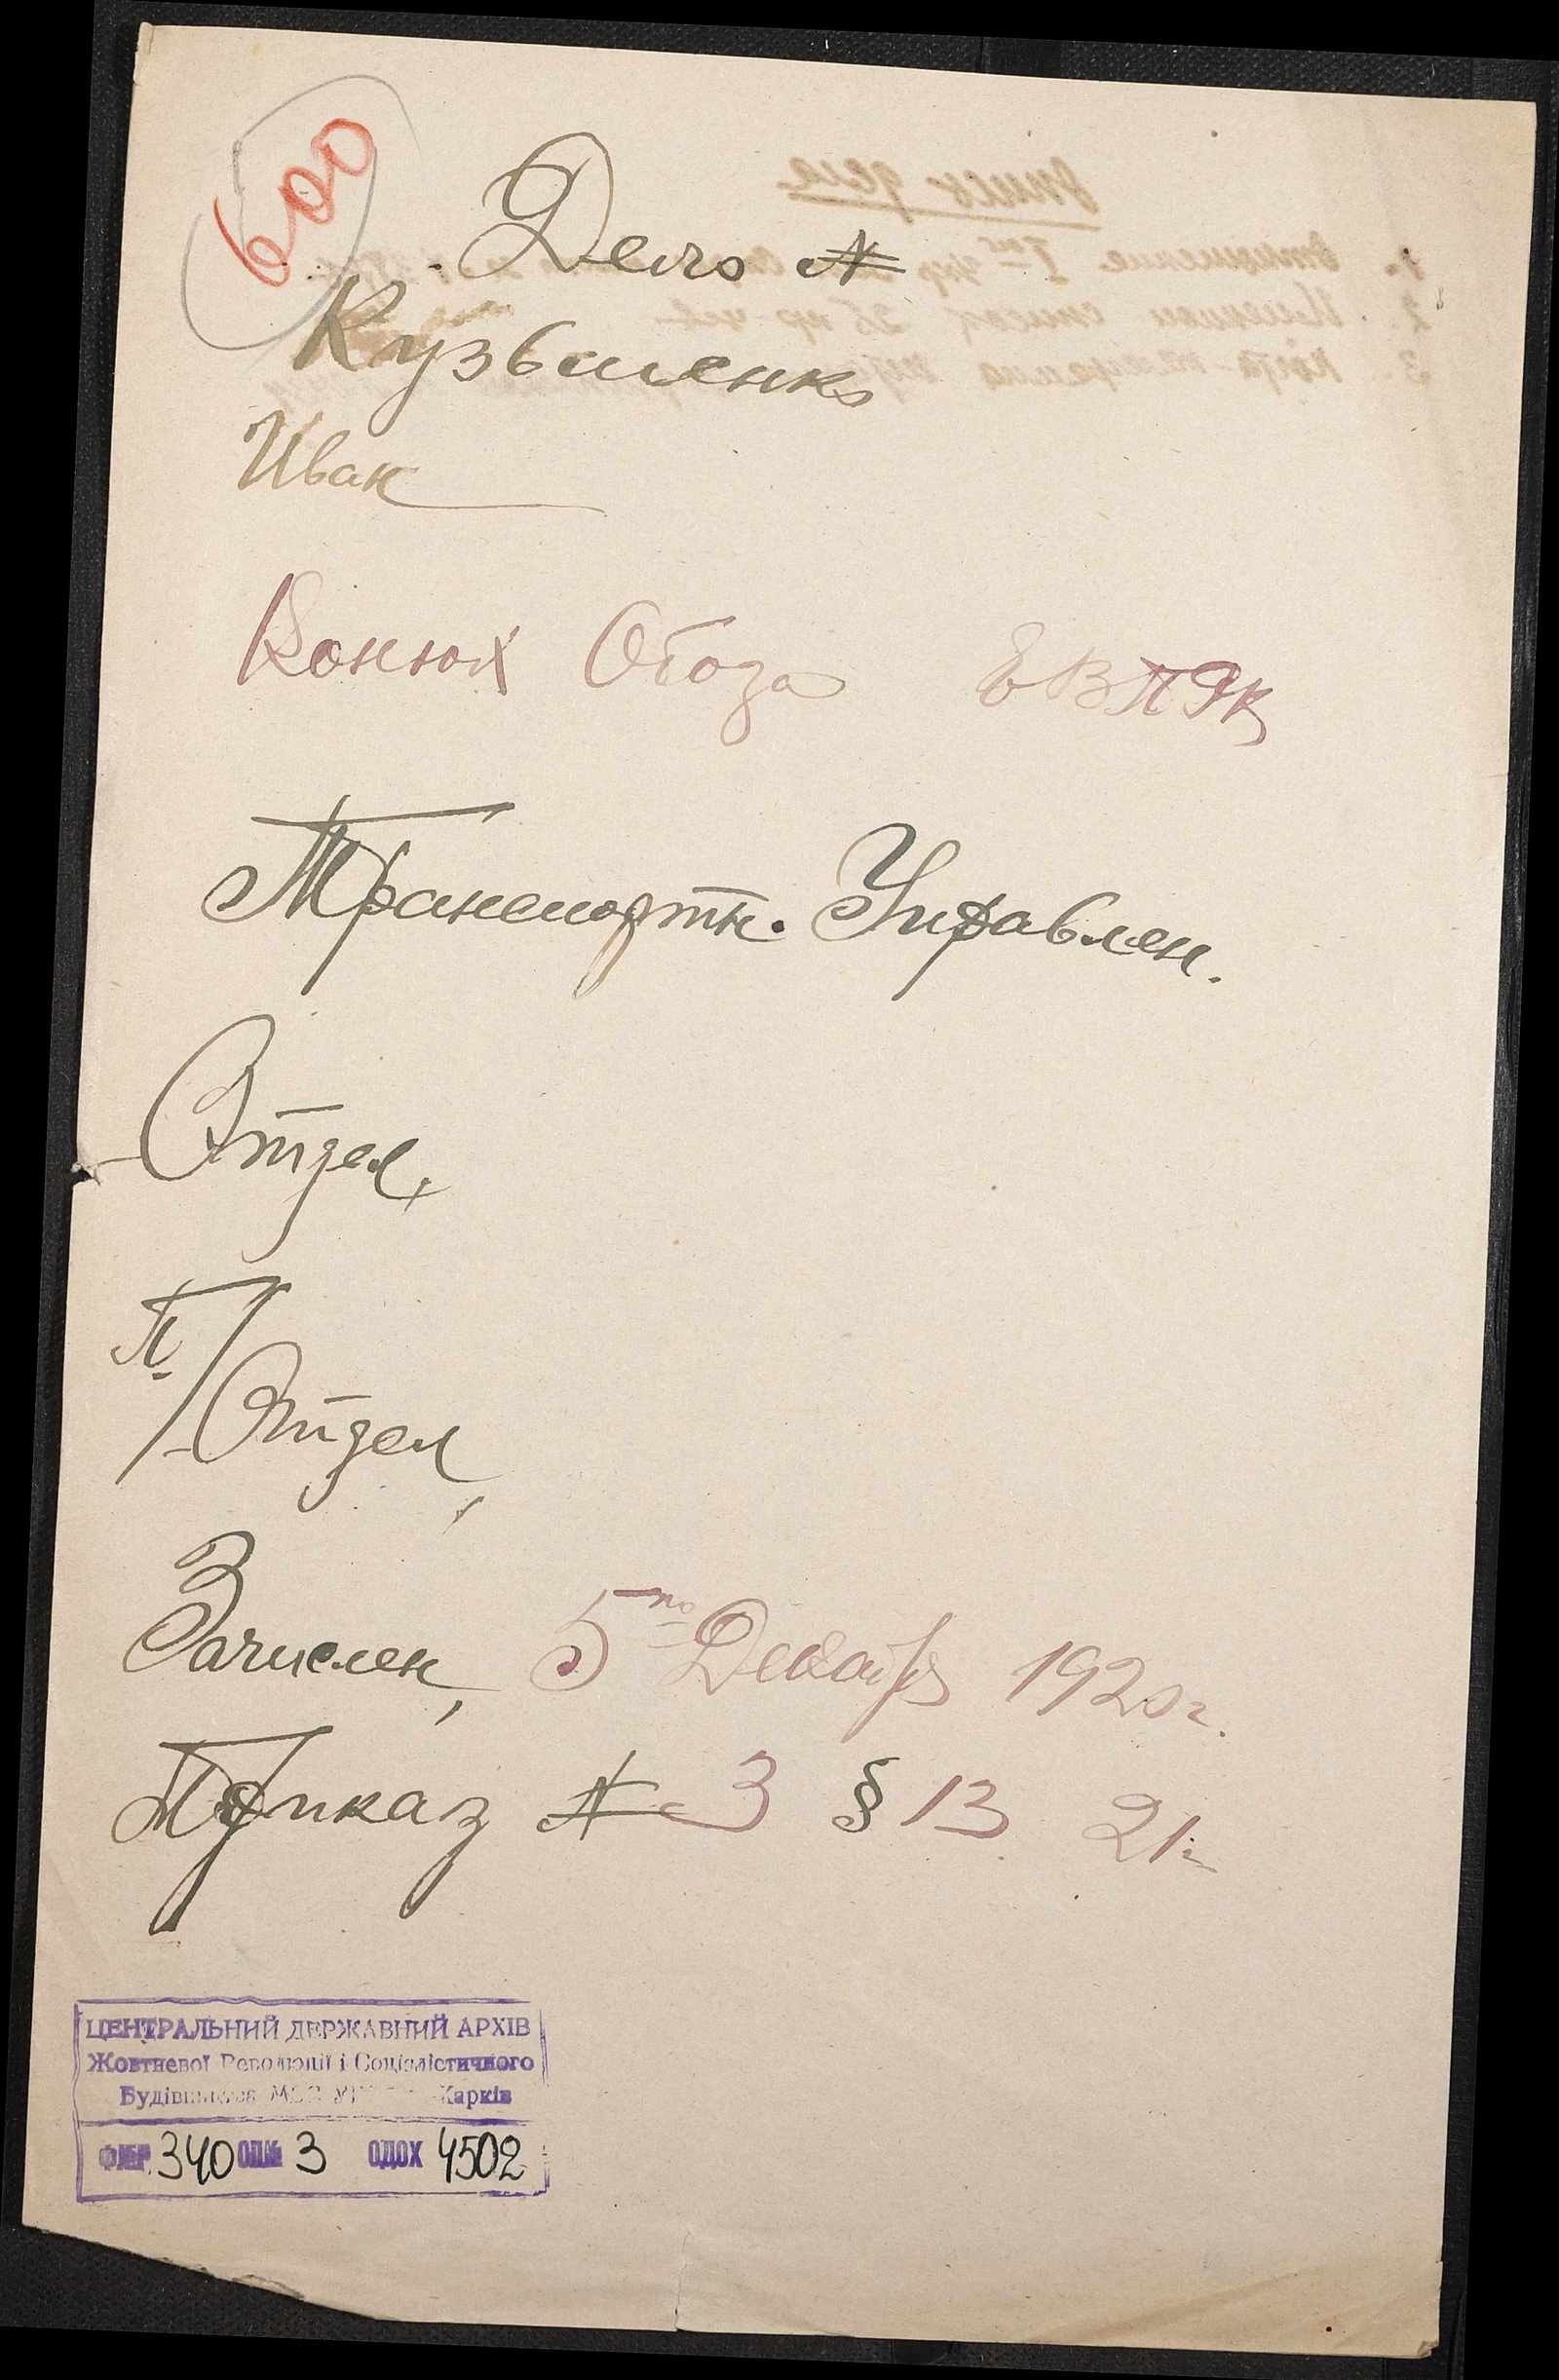 600
Дело №
Кузьменко
Иван
Конюх Обоза
Транспортн. Управлен.
Отдел,
П/Отдел,
Зачислен, 5го Декабря 1920 г.
Приказ № 3 § 13 21 г.
ЦЕНТРАЛЬНИЙ ДЕРЖАВНИЙ АРХІВ
Жовтневої Революції і Соціалістичного
Будівництва Харків
340 3 ОДОХ 4502